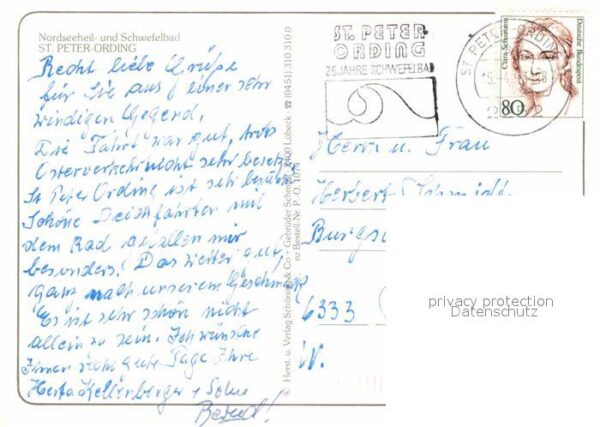 Nordseeheil- und Schwefelbad
ST. PETER-ORDING
Recht liebe Grüße
für Sie aus einer sehr
windigen Gegend,
Die Fahrt war gut, trotz
Osterverkehr nicht sehr besetzt
St Peter Ording ist sehr
Schöne Deichfahrten mit
dem Rad gefallen mir
besonders. Das Wetter gut,
ganz nach unserem Geschmack
Es ist sehr schön nicht
allein zu sein. Ich wünsche
Ihnen recht gute Tage Ihre
Herta Kellerberger + Sohn
Bernd!
Herst. u. Verlag Schöning & Co · Gebrüder Schmidt, 2400 Lübeck · ☎ (0451) 310 310
Bestell-Nr. P.O. 1074
ST. PETER
ORDING
25 JAHRE SCHWEFELBAD
ST. PETER-ORDING
Clara Schumann
Deutsche Bundespost
80
Herrn u. Frau
Herbert
6333
W.
privacy protection
Datenschutz